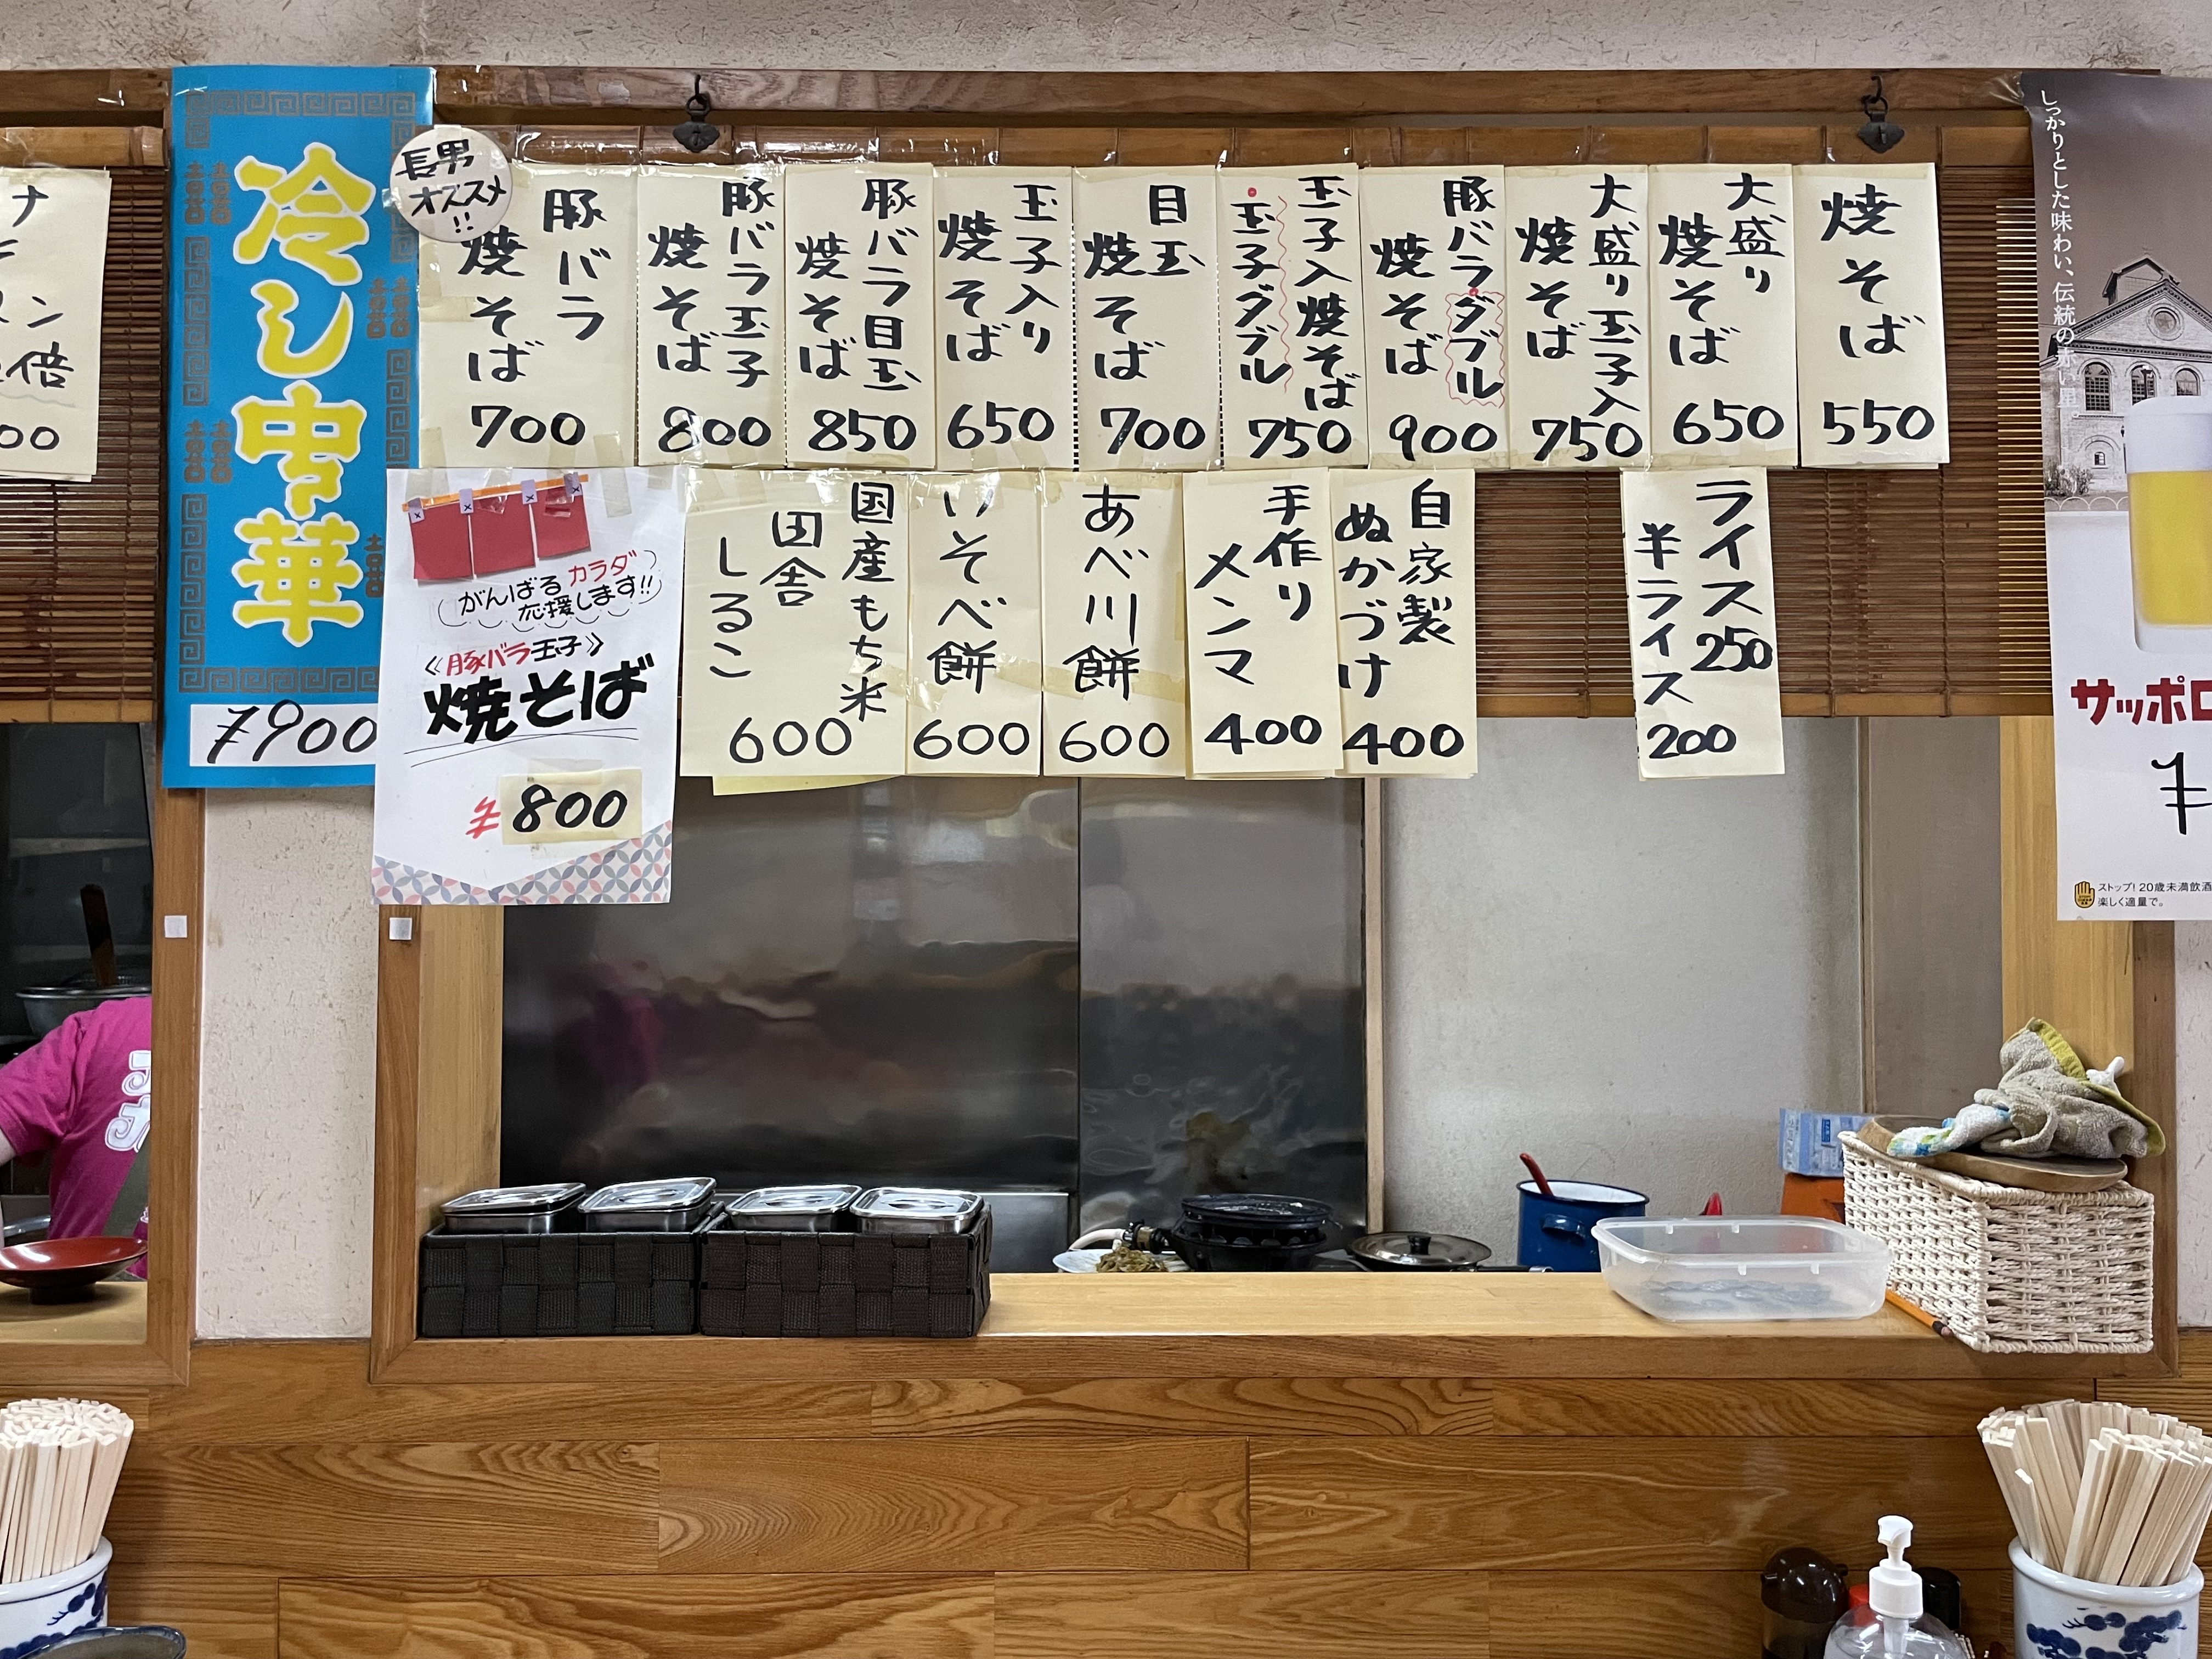 焼そば
550
大盛り
焼そば
650
大盛り玉子入
焼そば
750
豚バラダブル
焼そば
900
玉子入焼そば
玉子ダブル
750
目玉
焼そば
700
玉子入り
焼そば
650
豚バラ目玉
焼そば
850
豚バラ玉子
焼そば
800
豚バラ
焼そば
700
長男
オススメ
!!
ライス250
半ライス
200
自家製
ぬかづけ
400
手作り
メンマ
400
あべ川餅
600
いそべ餅
600
国産もち米
田舎
しるこ
600
がんばるカラダ
応援します!!
《豚バラ玉子》
焼そば
¥800
冷し中華
¥900
倍
00
しっかりとした味わい、伝統の赤い星
サッポロ
¥
ストップ!20歳未満飲酒
楽しく適量で。